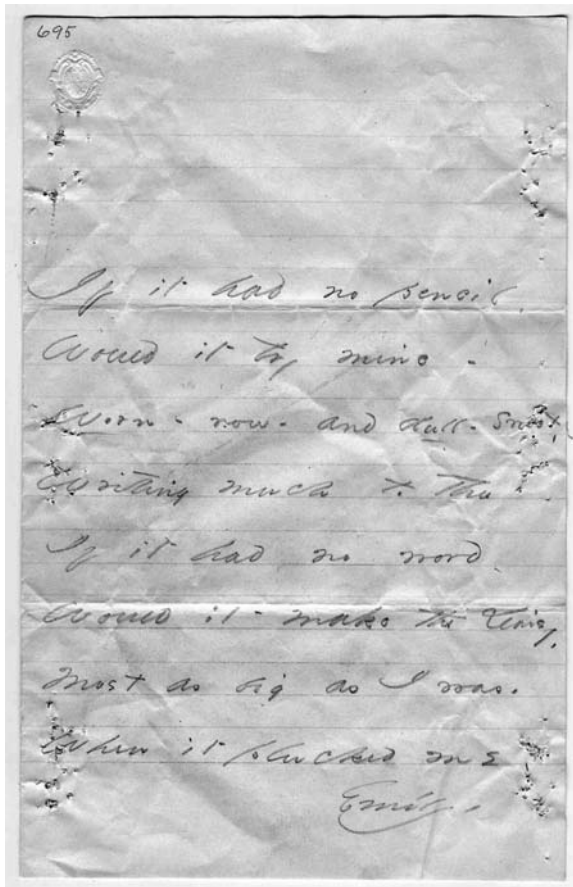 695
If it had no pencil,
Would it try mine -
Worn - now - and dull - sweet,
Writing much to thee
If it had no word -
Would it - make the Daisy,
Most as big as I was -
When it plucked me
Emily.